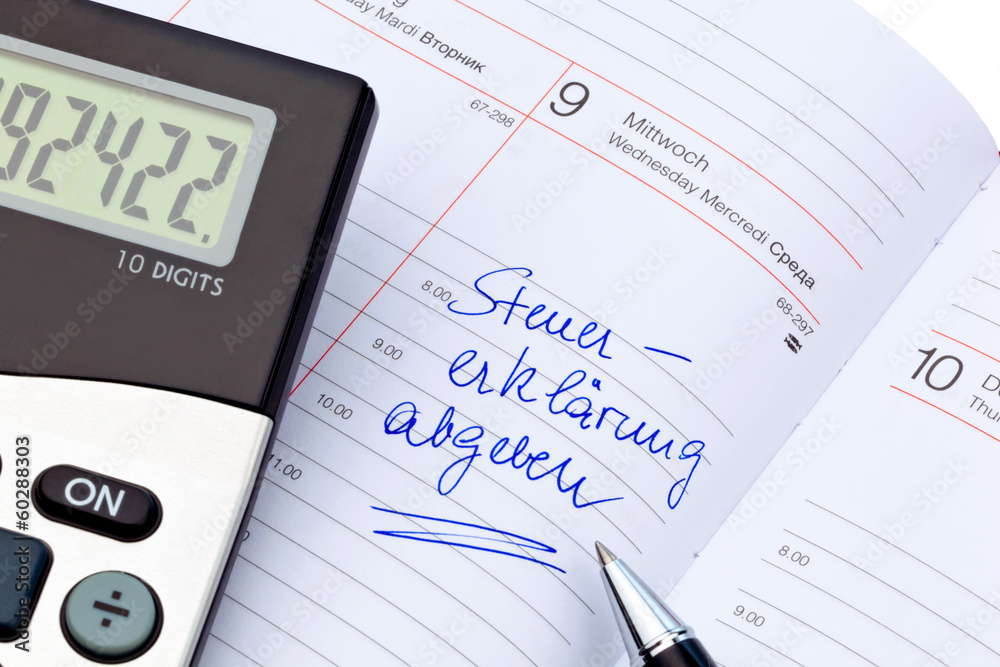 day Mardi Вторник
67-298
9
Mittwoch
Wednesday Mercredi Среда
68-297
8.00
9.00
10.00
11.00
Steuer–
erklärung
abgeben
10
Thur
8.00
9.00
92422.
10 DIGITS
ON
÷
Adobe Stock | #60288303